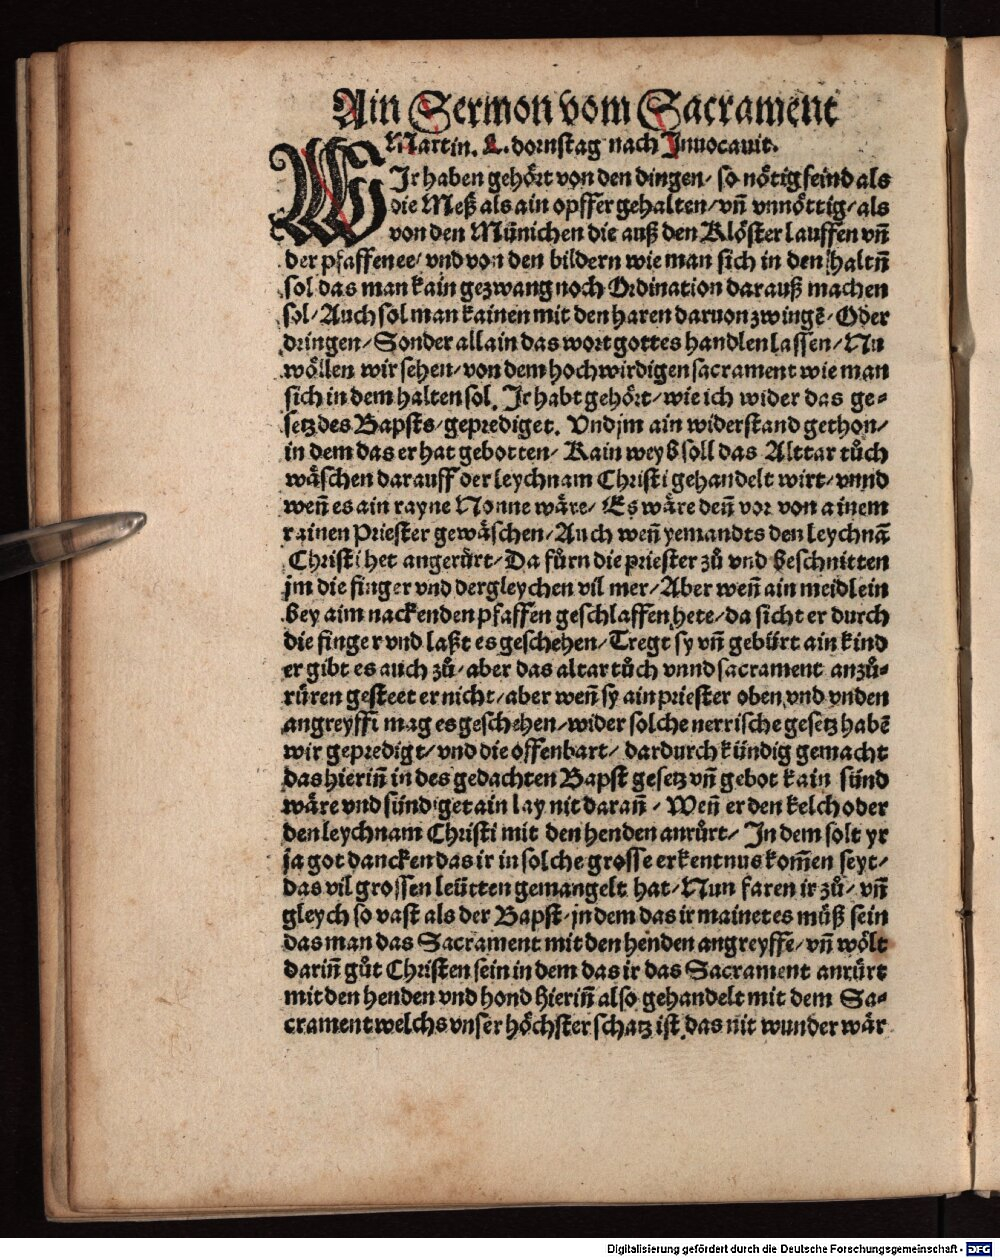 Ain Sermon vom Sacrament
Martin. L. dornstag nach Inuocauit.
WIr haben gehört von den dingen/ so nötig seind als
die Meß als ain opffer gehalten/ vñ vnnöttig/ als
von den Münichen die auß den Klöster lauffen vñ
der pfaffen ee/ vnd von den bildern wie man sich in den haltñ
sol das man kain gezwang noch Ordination darauß machen
sol/ Auch sol man kainen mit den haren daruon zwingẽ/ Oder
dringen/ Sonder allain das wort gottes handlen lassen/ Nu
wöllen wir sehen/ von dem hochwirdigen sacrament wie man
sich in dem halten sol. Ir habt gehört/ wie ich wider das ge⸗
setz des Bapsts/ geprediget. Vnd jm ain widerstand gethon/
in dem das er hat gebotten/ Kain weyb soll das Alttar tůch
wäschen darauff der leychnam Christi gehandelt wirt/ vnnd
weñ es ain rayne Nonne wäre/ Es wäre deñ vor von ainem
rainen Priester gewäschen/ Auch weñ yemandts den leychnã
Christi het angerürt/ Da fůrn die priester zů vnd beschnitten
jm die finger vnd dergleychen vil mer/ Aber weñ ain meidlein
bey aim nackenden pfaffen geschlaffen hete/ da sicht er durch
die finger vnd laßt es geschehen/ Tregt sy vñ gebürt ain kind
er gibt es auch zů/ aber das altar tůch vnnd sacrament anzů⸗
rüren gesteet er nicht/ aber weñ sy ain priester oben vnd vnden
angreyffi mag es geschehen/ wider solche nerrische gesetz habẽ
wir gepredigt/ vnd die offenbart/ dardurch kündig gemacht
das hieriñ in des gedachten Bapst gesetz vñ gebot kain sünd
wäre vnd sündiget ain lay nit darañ/ Weñ er den kelch oder
den leychnam Christi mit den henden anrůrt/ In dem solt yr
ja got dancken das ir in solche grosse erkentnus kom̃en seyt/
das vil grossen leütten gemangelt hat/ Nun faren ir zů/ vñ
gleych so vast als der Bapst/ jn dem das ir mainet es můß sein
das man das Sacrament mit den henden angreyffe/ vñ wölt
dariñ gůt Christen sein in dem das ir das Sacrament anrürt
mit den henden vnd hond hieriñ also gehandelt mit dem Sa⸗
crament welchs vnser höchster schatz ist das nit wunder wär
Digitalisierung gefördert durch die Deutsche Forschungsgemeinschaft - DFG